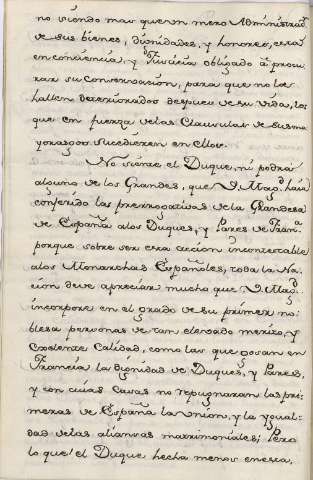 no siendo mas que un mero Administrad.r
de sus bienes, dignidades, y honores, esta
en conciencia, y Justicia obligado à procu
rar su Conservacion, para que no los
hallen deteriorados despues de su vida, los
que en fuerza delas Clausulas de sus ma
yorazgos sucedieren en ellos.
No siente el Duque, ni podrá
alguno de los Grandes, que V. Mag.d haia
conferido las prerrogativas de la Grandesa
de España alos Duques, y Pares de Fran.a
porque sobre ser esta accion incontestable
alos Monarchas Españoles, toda la Na
cion deve apreciar mucho que V. Mag.d
incorpore en el grado de su primer no
blesa personas de tan elevado merito, y
excelente Calidad, como las que gosan en
Francia la dignidad de Duques, y Pares,
y con cuias Casas no repugnaran las pri
meras de España la Union, y la ygual
dad delas aliansas matrimoniales; Pero
lo que el Duque hecha menos en esta,